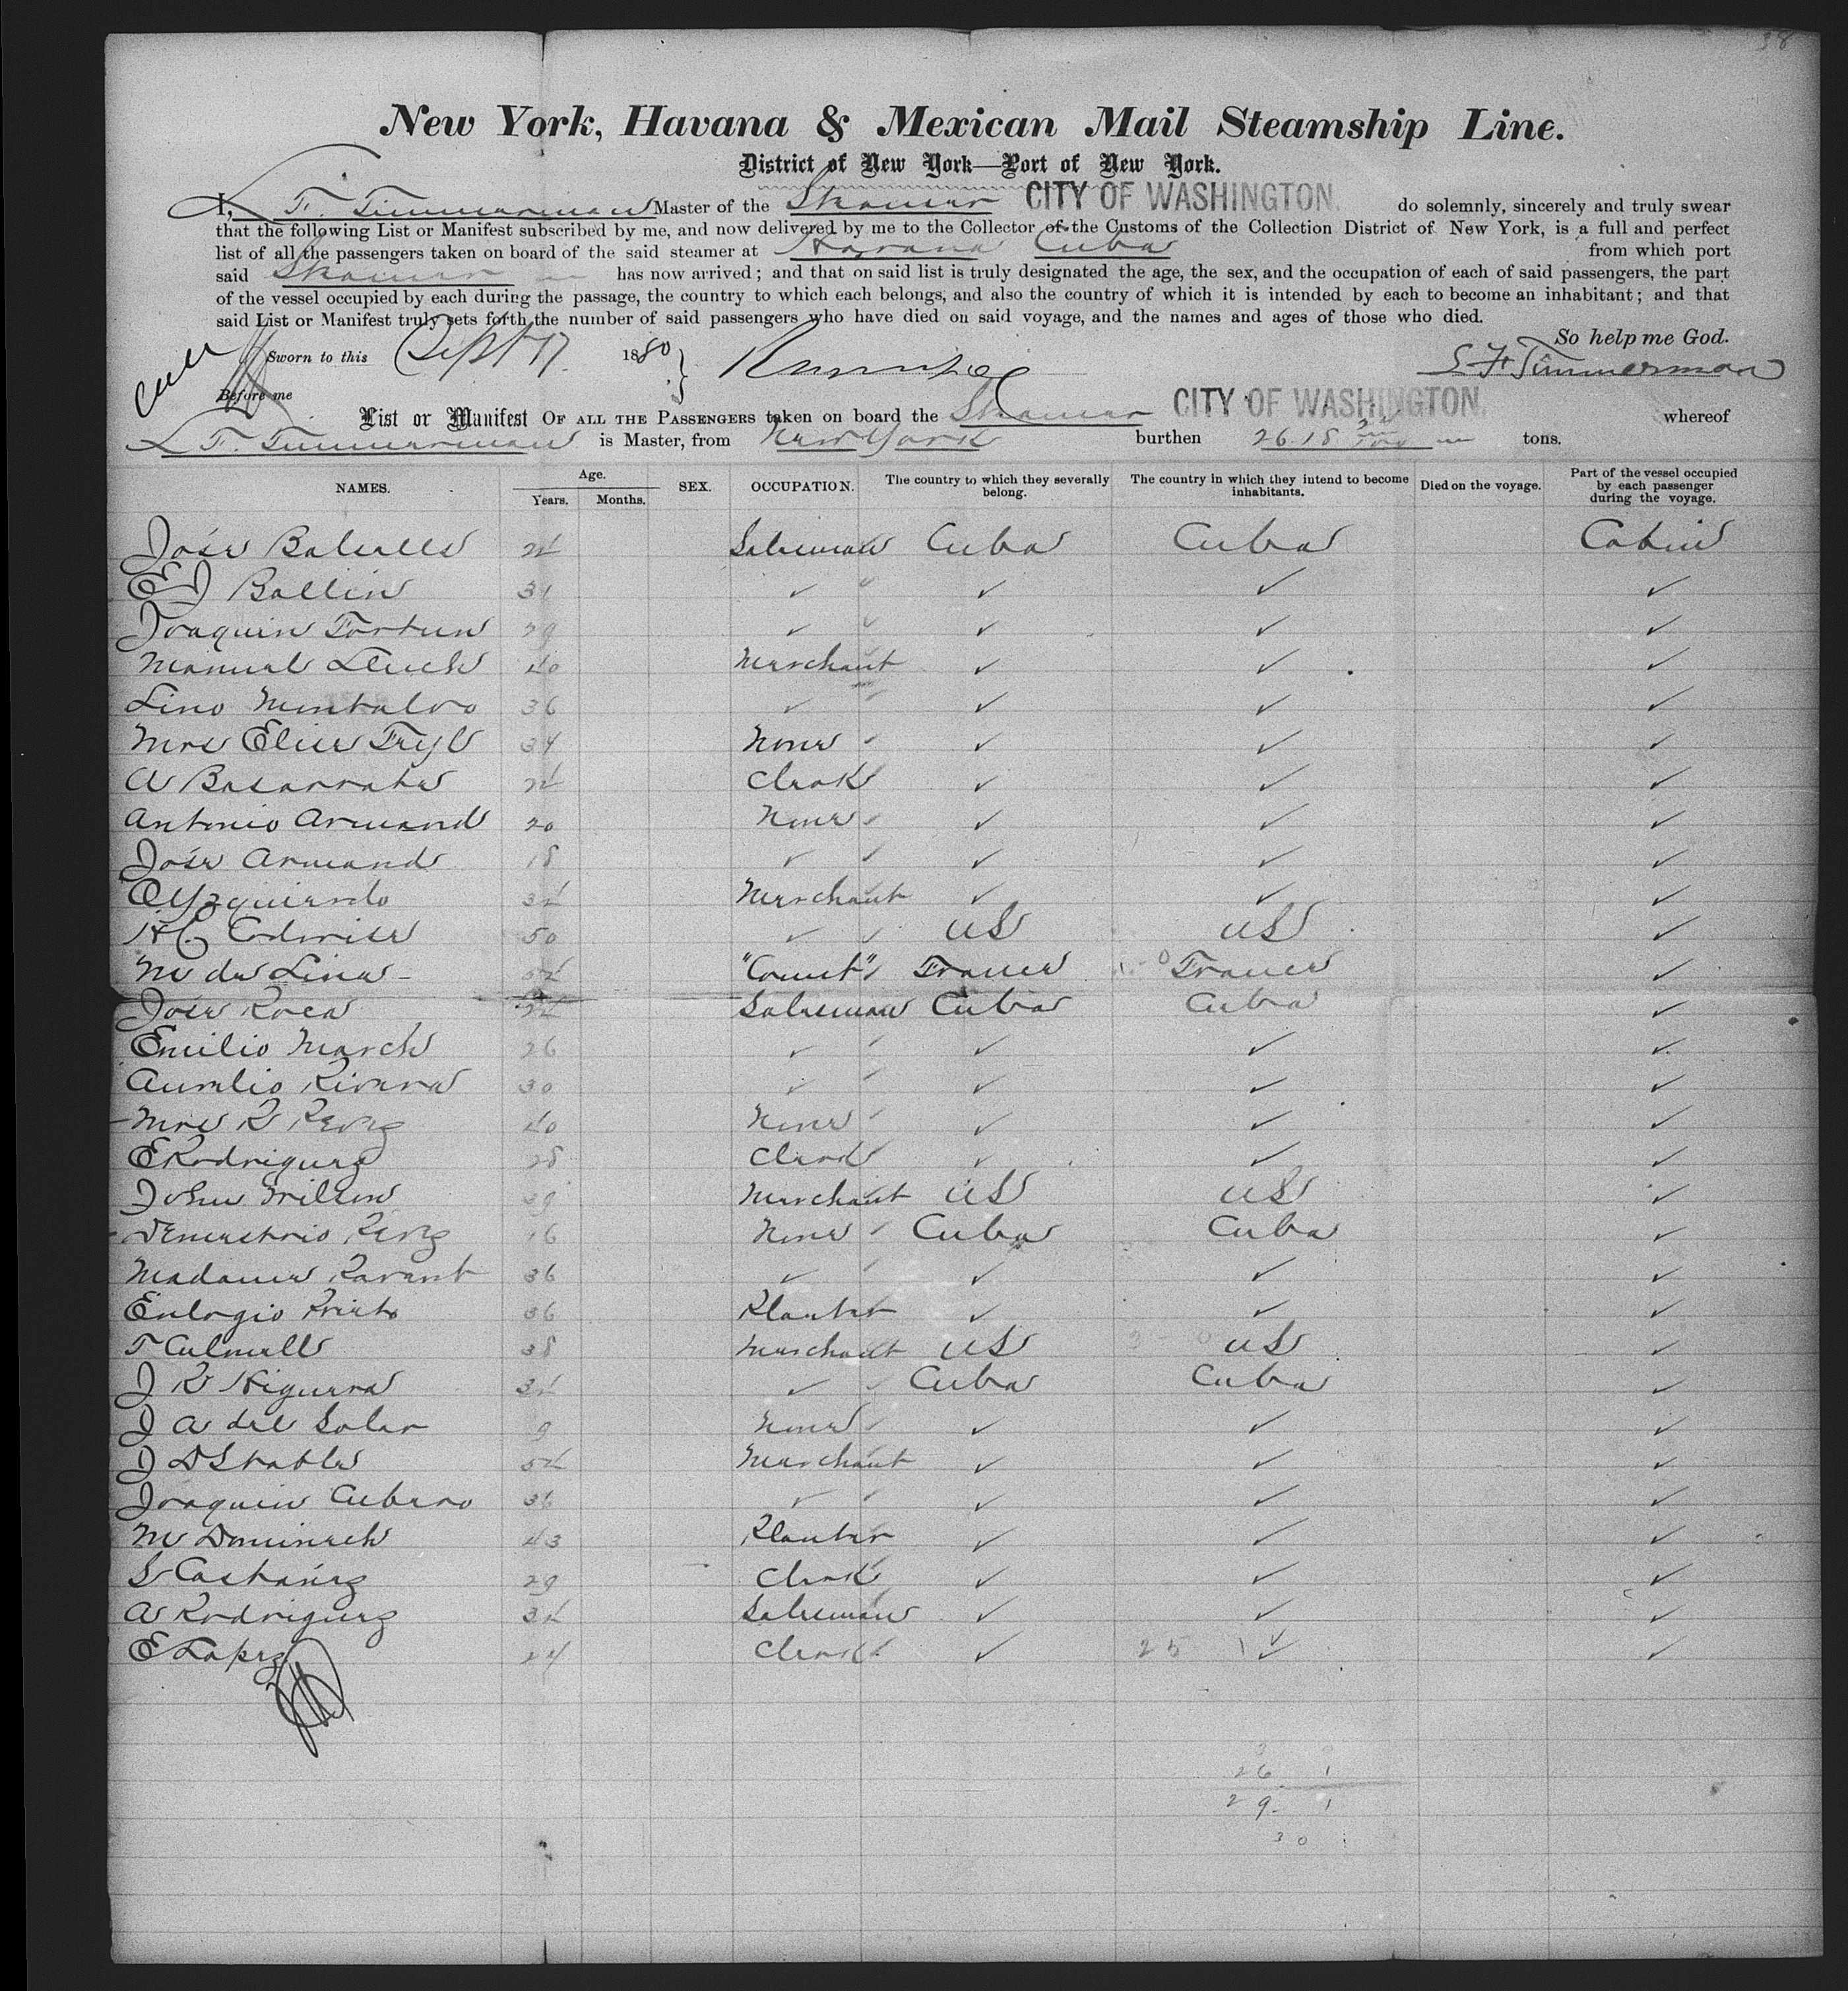 38
New York, Havana & Mexican Mail Steamship Line.
District of New York—Port of New York.
I, L F. Timmerman Master of the Steamer CITY OF WASHINGTON. do solemnly, sincerely and truly swear
that the following List or Manifest subscribed by me, and now delivered by me to the Collector of the Customs of the Collection District of New York, is a full and perfect
list of all the passengers taken on board of the said steamer at Havana Cuba from which port
said Steamer has now arrived; and that on said list is truly designated the age, the sex, and the occupation of each of said passengers, the part
of the vessel occupied by each during the passage, the country to which each belongs, and also the country of which it is intended by each to become an inhabitant; and that
said List or Manifest truly sets forth the number of said passengers who have died on said voyage, and the names and ages of those who died.
So help me God.
Sworn to this Sept 17. 1880 } L F Timmerman
Before me
List or Manifest OF ALL THE PASSENGERS taken on board the Steamer CITY OF WASHINGTON. whereof
L F. Timmerman is Master, from New York burthen 26.18 tons.
NAMES. Age. Years. Months. SEX. OCCUPATION. The country to which they severally belong. The country in which they intend to become inhabitants. Died on the voyage. Part of the vessel occupied by each passenger during the voyage.
José Salesman Cuba Cuba Cabin
Ballin 31 ✓ ✓ ✓ ✓
Joaquin Fortun 29 ✓ ✓ ✓ ✓
Manuel Lluch 40 Merchant ✓ ✓ ✓
Lino Montalvo 36 ✓ ✓ ✓ ✓
Mrs 34 None ✓ ✓ ✓
A Basarrate Clerk ✓ ✓ ✓
Antonio Armand 20 None ✓ ✓ ✓
José Armand 18 ✓ ✓ ✓ ✓
Yzquierdo Merchant ✓ ✓ ✓
50 ✓ US US ✓
M de Lina "Count" France France ✓
José Roca Salesman Cuba Cuba ✓
Emilio March 26 ✓ ✓ ✓ ✓
Aurelio Rivera 30 ✓ ✓ ✓ ✓
Mrs R Reyes 40 None ✓ ✓ ✓
E Rodriguez 28 Clerk ✓ ✓ ✓
John Wilson 39 Merchant US US ✓
Demetrio Reyes 16 None Cuba Cuba ✓
Madame 36 ✓ ✓ ✓ ✓
Eulogio Prieto 36 Planter ✓ ✓ ✓
T Culmell 38 Merchant US US ✓
J R Higuera ✓ Cuba Cuba ✓
J A del Solar 9 None ✓ ✓ ✓
J D Stable Merchant ✓ ✓ ✓
Joaquin Cubero 36 ✓ ✓ ✓ ✓
M Dominech 43 Planter ✓ ✓ ✓
S Castañez 29 Clerk ✓ ✓ ✓
A Rodriguez Salesman ✓ ✓ ✓
E Lopez 24 Clerk ✓ 25 1 ✓ ✓
26 1
29 1
30